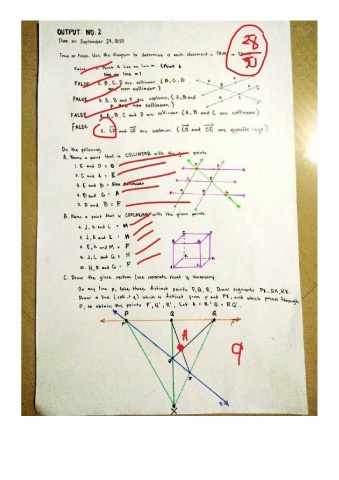 OUTPUT NO. 2
Due on September 29, 2020
28
30
True or False. Use the diagram to determine if each statement is TRUE or FALSE
False 1. Point A lies on line m. (Point A
lies on line
FALSE 2. B, C, D are collinear. (B, C, D
are non collinear.)
FALSE 3. A, B and F are coplanar. (A, B and
non collinear.)
FALSE 4. A, B, C and D are collinear. (A, B and C are collinear)
FALSE 5. CD and CE are coplanar. (CD and CE are opposite rays)
Do the following.
A. Name a point that is COLLINEAR with the given points.
1. E and D = G
2. C and A = E
3. E and B = Non collinear
4. B and G = A
5. D and B = F
B. Name a point that is COPLANAR with the given points.
J, K and L = M
J, K and E = H
E, K and M = F
J, L and G = H
10. H, E and G = F
C. Draw the given system (use separate sheet if necessary.
On any line p, take three distinct points P, Q, R. Draw segments PX, QX, RX.
Draw a line (call it q) which is distinct from p and PX, and which passes through
P, to obtain the points P', Q', R'. Let A = R'Q ∩ Q'R.
P
Q
R
A
9
X